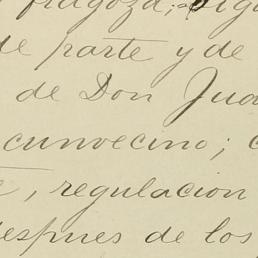 fragoza;
de parte y de
de Don Jua
cunvecino; c
, regulacion
despues de los